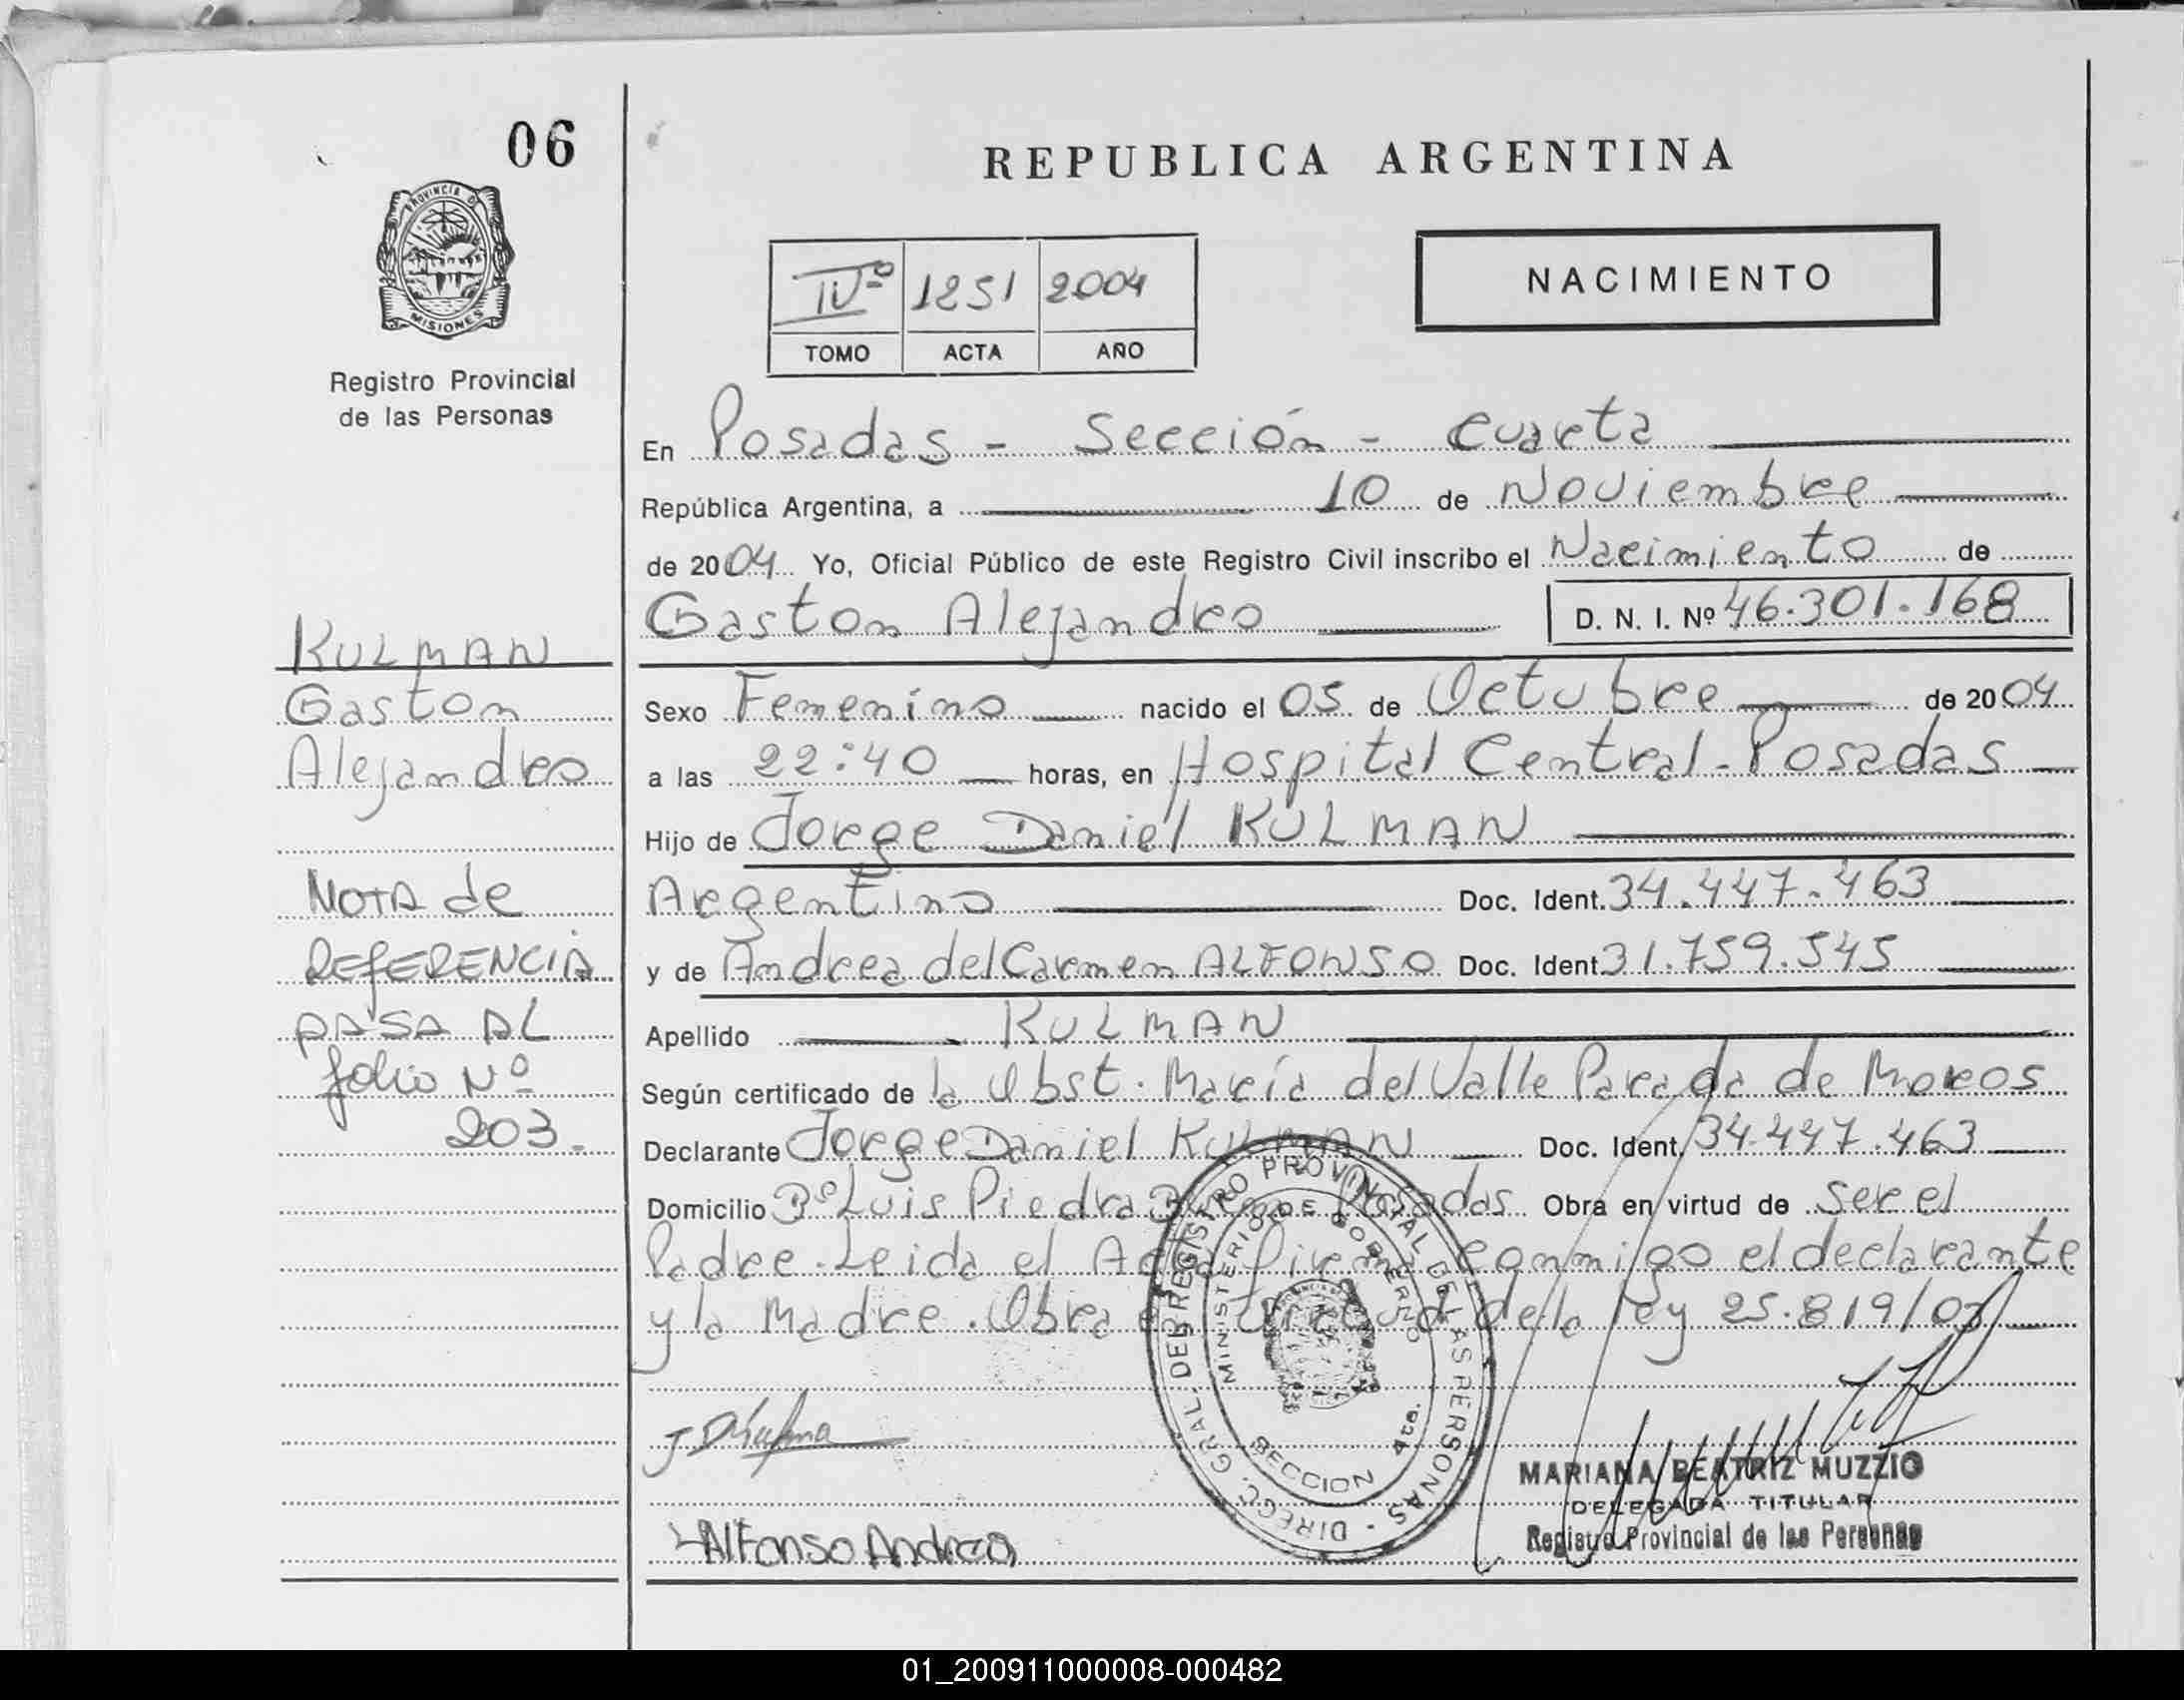 06
PROVINCIA DE
MISIONES
Registro Provincial
de las Personas
REPUBLICA ARGENTINA
NACIMIENTO
IVº 1251 2004
TOMO ACTA AÑO
En Posadas - Sección - Cuarta
República Argentina, a 10 de Noviembre
de 2004 Yo, Oficial Público de este Registro Civil inscribo el Nacimiento de
Gaston Alejandro D. N. I. Nº 46.301.168
Sexo Femenino nacido el 05 de Octubre de 2004
a las 22:40 horas, en Hospital Central - Posadas
Hijo de Jorge Daniel KULMAN
Argentino Doc. Ident. 34.447.463
y de Andrea del Carmen ALFONSO Doc. Ident 31.759.545
Apellido KULMAN
Según certificado de la Obst. María del Valle Parada de Moreos
Declarante Jorge Daniel KULMAN Doc. Ident. 34.447.463
Domicilio Bº Luis Piedra Posadas Obra en virtud de Ser el
Padre. Leida el Acta Firma conmigo el declarante
y la Madre. Obra en virtud de la ley 25.819/03
KULMAN
Gaston
Alejandro
NOTA de
REFERENCIA
PASA AL
folio Nº
203.
DIRECC. GRAL. DEL REGISTRO PROVINCIAL DE LAS PERSONAS
MINISTERIO DE GOBIERNO
SECCION 4ta.
Alfonso Andrea
MARIANA BEATRIZ MUZZIO
DELEGADA TITULAR
Registro Provincial de las Personas
01_200911000008-000482